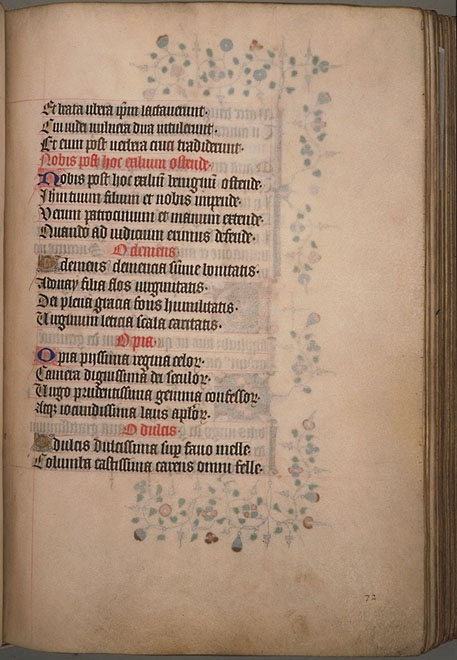 Et beata ubera ipm lactaverunt.
Cui iudei vulnera dira intulerunt.
Et eum post verbera cruci tradiderunt.
Nobis post hoc exilium ostende.
Nobis post hoc exiliū benignū ostende.
Ihm tuum filium et nobis impende.
Verum patrocinium et manum extende.
Quando ad iudicium erimus defende.
O clemens.
O clemens clemencia sūme bonitatis.
Adonay salva flos virginitatis.
Dei plena gracia fons humilitatis.
Virginum leticia scala caritatis.
O pia.
O pia piissima regina celoꝝ.
Camera dignissima dei seculoꝝ.
Virgo prudentissima gemma confessoꝝ.
Atqꝫ iocundissima laus aploꝝ.
O dulcis.
O dulcis dulcissima sup favo melle.
Columba castissima carens omni felle.
72